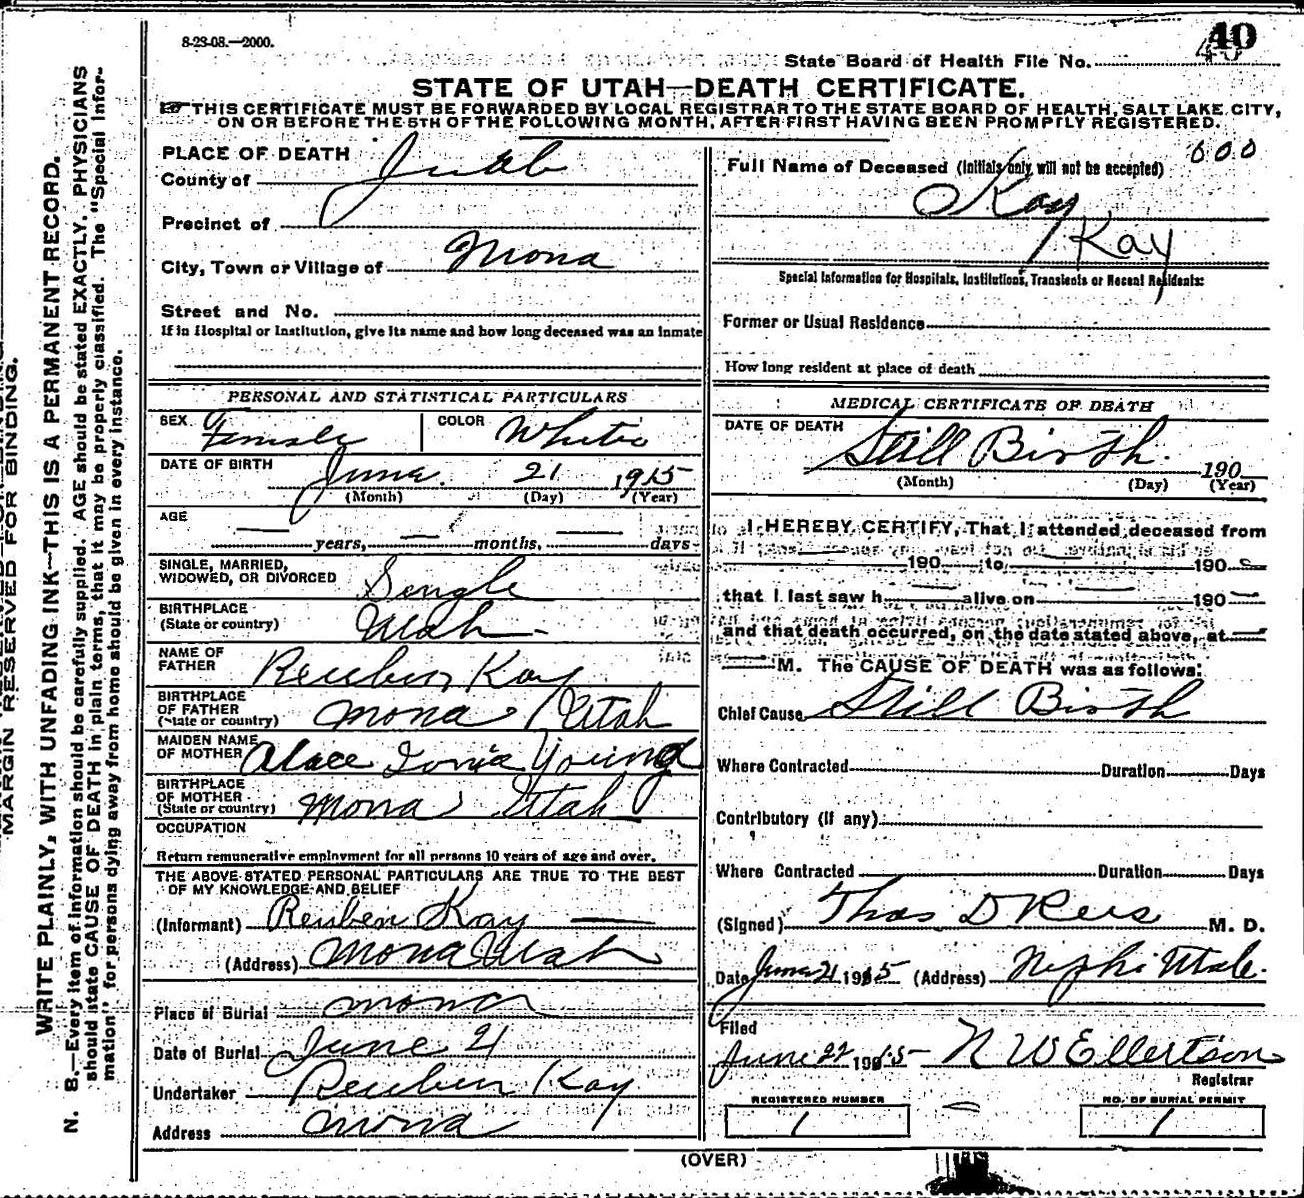 8-23-08.—2000.
40
40
State Board of Health File No.
STATE OF UTAH—DEATH CERTIFICATE.
THIS CERTIFICATE MUST BE FORWARDED BY LOCAL REGISTRAR TO THE STATE BOARD OF HEALTH, SALT LAKE CITY,
ON OR BEFORE THE 5TH OF THE FOLLOWING MONTH, AFTER FIRST HAVING BEEN PROMPTLY REGISTERED.
PLACE OF DEATH
County of Juab
Precinct of
City, Town or Village of Mona
Street and No.
If in Hospital or Institution, give its name and how long deceased was an inmate
PERSONAL AND STATISTICAL PARTICULARS
SEX Female COLOR White
DATE OF BIRTH June 21 1915
(Month) (Day) (Year)
AGE
— years, — months, — days
SINGLE, MARRIED,
WIDOWED, OR DIVORCED Single
BIRTHPLACE
(State or country) Utah
NAME OF
FATHER Reuben Kay
BIRTHPLACE
OF FATHER
(State or country) Mona Utah
MAIDEN NAME
OF MOTHER Alace Young
BIRTHPLACE
OF MOTHER
(State or country) Mona Utah
OCCUPATION
Return remunerative employment for all persons 10 years of age and over.
THE ABOVE STATED PERSONAL PARTICULARS ARE TRUE TO THE BEST
OF MY KNOWLEDGE AND BELIEF
(Informant) Reuben Kay
(Address) Mona Utah
Place of Burial Mona
Date of Burial June 21
Undertaker Reuben Kay
Address Mona
Full Name of Deceased (Initials only will not be accepted) 000
Kay
Kay
Special Information for Hospitals, Institutions, Transients or Recent Residents:
Former or Usual Residence
How long resident at place of death
MEDICAL CERTIFICATE OF DEATH
DATE OF DEATH Still Birth. 190
(Month) (Day) (Year)
I HEREBY CERTIFY, That I attended deceased from
190 to 190
that I last saw h alive on 190
and that death occurred, on the date stated above, at —
— M. The CAUSE OF DEATH was as follows:
Chief Cause Still Birth
Where Contracted Duration Days
Contributory (if any)
Where Contracted Duration Days
(Signed) Thos D Rees M. D.
Date June 21 1915 (Address) Nephi Utah.
Filed
June 22 1915 N W Ellertson
Registrar
REGISTERED NUMBER
1
NO. OF BURIAL PERMIT
1
(OVER)
MARGIN RESERVED FOR BINDING.
WRITE PLAINLY, WITH UNFADING INK—THIS IS A PERMANENT RECORD.
N. B.—Every item of information should be carefully supplied. AGE should be stated EXACTLY. PHYSICIANS
should state CAUSE OF DEATH in plain terms, that it may be properly classified. The "Special Infor-
mation" for persons dying away from home should be given in every instance.